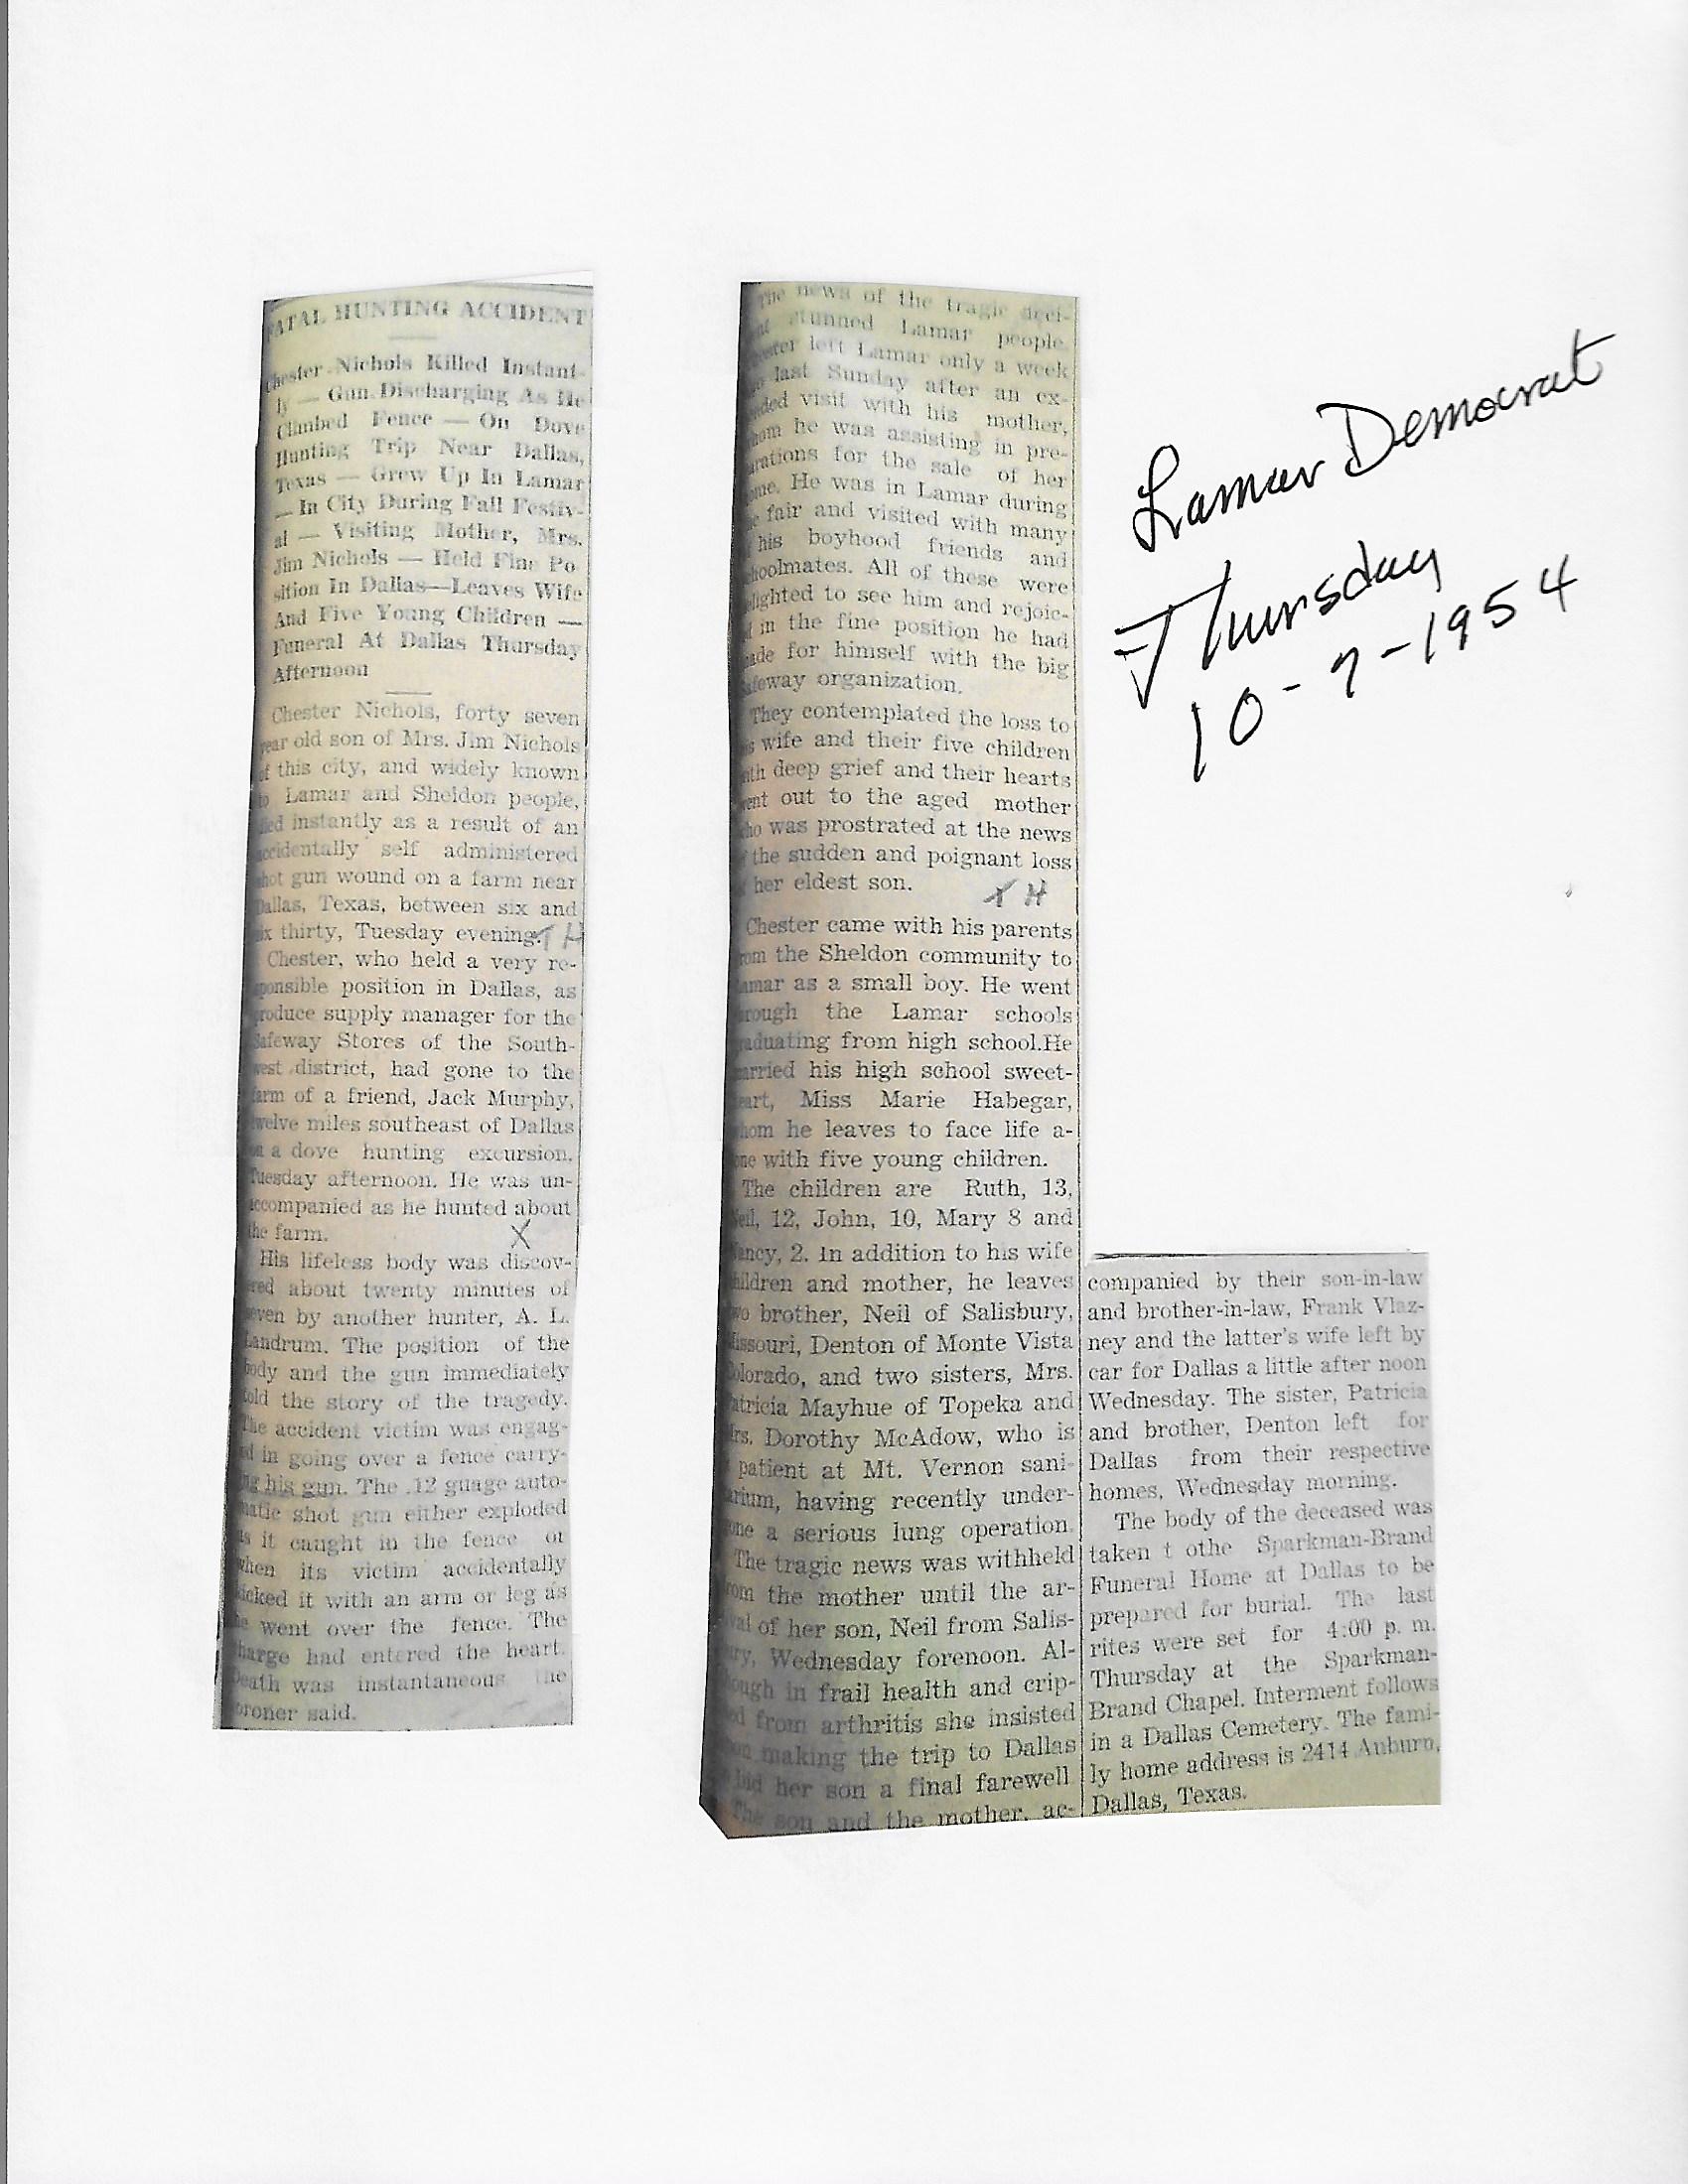 FATAL HUNTING ACCIDENT
Chester Nichols Killed Instant-
ly — Gun Discharging As He
Climbed Fence — On Dove
Hunting Trip Near Dallas,
Texas — Grew Up In Lamar
— In City During Fall Festiv-
al — Visiting Mother, Mrs.
Jim Nichols — Held Fine Po
sition In Dallas—Leaves Wife
And Five Young Children —
Funeral At Dallas Thursday
Afternoon
Chester Nichols, forty seven
year old son of Mrs. Jim Nichols
of this city, and widely known
to Lamar and Sheldon people,
died instantly as a result of an
accidentally self administered
shot gun wound on a farm near
Dallas, Texas, between six and
six thirty, Tuesday evening.
Chester, who held a very re-
sponsible position in Dallas, as
produce supply manager for the
Safeway Stores of the South-
west district, had gone to the
farm of a friend, Jack Murphy,
twelve miles southeast of Dallas
on a dove hunting excursion,
Tuesday afternoon. He was un-
accompanied as he hunted about
the farm. X
His lifeless body was discov-
ered about twenty minutes of
seven by another hunter, A. L.
Landrum. The position of the
body and the gun immediately
told the story of the tragedy.
The accident victim was engag-
ed in going over a fence carry-
ing his gun. The .12 guage auto-
matic shot gun either exploded
as it caught in the fence or
when its victim accidentally
kicked it with an arm or leg as
he went over the fence. The
charge had entered the heart.
Death was instantaneous the
coroner said.
The news of the tragic acci-
ent stunned Lamar people.
Chester left Lamar only a week
ago last Sunday after an ex-
tended visit with his mother,
whom he was assisting in pre-
parations for the sale of her
home. He was in Lamar during
the fair and visited with many
of his boyhood friends and
schoolmates. All of these were
delighted to see him and rejoic-
ed in the fine position he had
made for himself with the big
Safeway organization.
They contemplated the loss to
his wife and their five children
with deep grief and their hearts
went out to the aged mother
who was prostrated at the news
of the sudden and poignant loss
of her eldest son.
Chester came with his parents
from the Sheldon community to
Lamar as a small boy. He went
through the Lamar schools
graduating from high school.He
married his high school sweet-
heart, Miss Marie Habegar,
whom he leaves to face life a-
lone with five young children.
The children are Ruth, 13,
Neil, 12, John, 10, Mary 8 and
Nancy, 2. In addition to his wife
children and mother, he leaves
two brother, Neil of Salisbury,
Missouri, Denton of Monte Vista
Colorado, and two sisters, Mrs.
Patricia Mayhue of Topeka and
Mrs. Dorothy McAdow, who is
a patient at Mt. Vernon sani-
tarium, having recently under-
gone a serious lung operation.
The tragic news was withheld
from the mother until the ar-
rival of her son, Neil from Salis-
bury, Wednesday forenoon. Al-
though in frail health and crip-
pled from arthritis she insisted
upon making the trip to Dallas
to bid her son a final farewell.
The son and the mother, ac-
companied by their son-in-law
and brother-in-law, Frank Vlaz-
ney and the latter's wife left by
car for Dallas a little after noon
Wednesday. The sister, Patricia
and brother, Denton left for
Dallas from their respective
homes, Wednesday morning.
The body of the deceased was
taken t othe Sparkman-Brand
Funeral Home at Dallas to be
prepared for burial. The last
rites were set for 4:00 p. m.
Thursday at the Sparkman-
Brand Chapel. Interment follows
in a Dallas Cemetery. The fami-
ly home address is 2414 Auburn,
Dallas, Texas.
Lamar Democrat
Thursday
10-7-1954